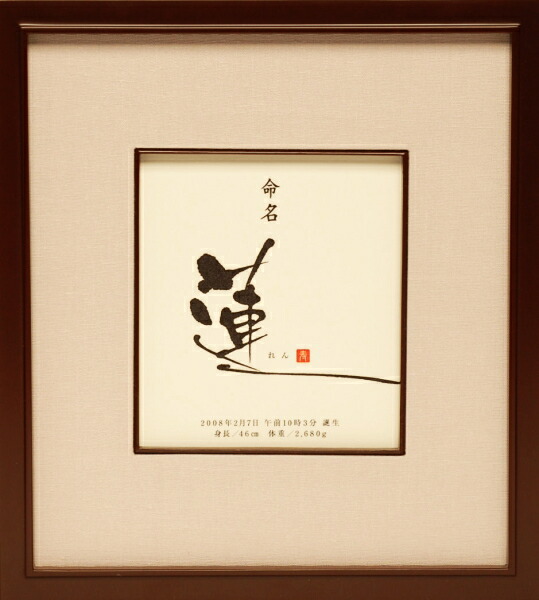 命名
蓮
れん
2008年2月7日 午前10時3分 誕生
身長/46㎝ 体重/2,680g